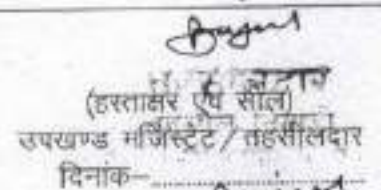 (हस्ताक्षर एवं सील)
उपखण्ड मजिस्ट्रेट / तहसीलदार
दिनांक–.....................